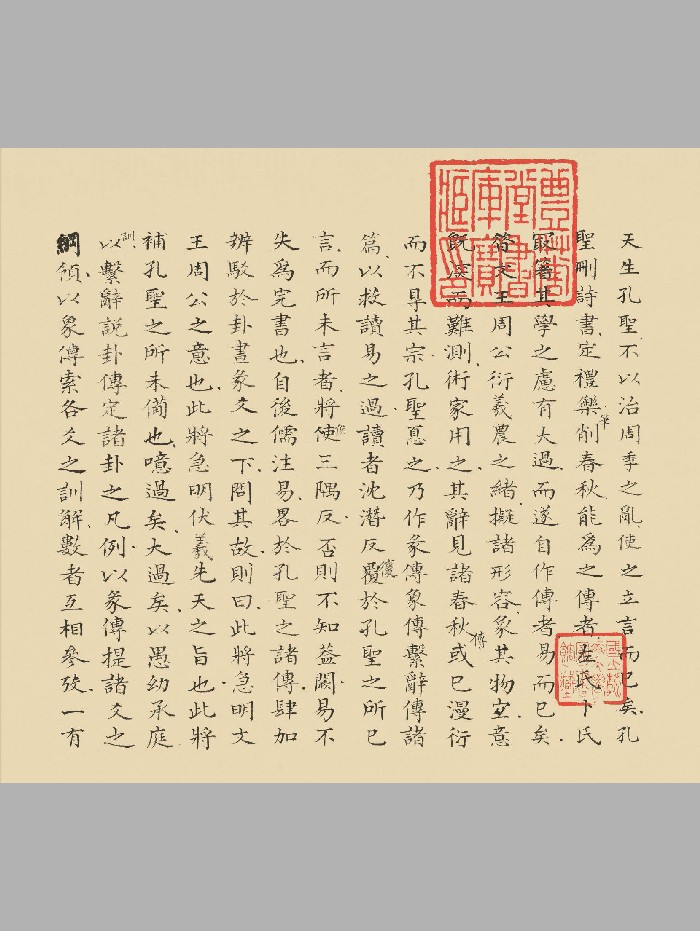 天生孔聖不以治周季之亂使之立言而已矣孔
聖刪詩書定禮樂筆削春秋能為之傳者左氏卜氏
最著其學之慮有大過而遂自作傳者易而已矣
昔文王周公衍羲農之緒擬諸形容象其物宜意
既深而難測術家用之其辭見諸春秋傳或已漫衍
而不尋其宗孔聖憂之乃作彖傳象傳繫辭傳諸
篇以救讀易之過讀者沈潛反覆於孔聖之所已
言而所未言者將使三隅反否則不知蓋闕易不
失為完書也自後儒注易畧於孔聖之諸傳肆加
辨駁於卦畫彖爻之下問其故則曰此將急明文
王周公之意也此將急明伏羲先天之旨也此將
補孔聖之所未備也噫過矣大過矣以愚幼承庭
訓以繫辭說卦傳定諸卦之凡例以彖傳提諸爻之
綱領以象傳索各爻之訓解數者互相參攷一有